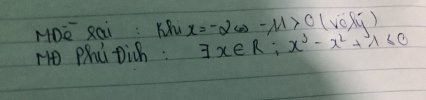 MĐề sai : Khi x = -2 ⇔ -11 > 0 (vô lý)
MĐ Phủ Định : ∃ x ∈ R ; x³ - x² + 1 ≤ 0